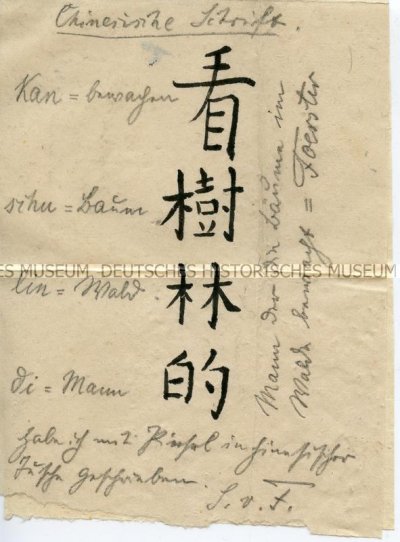 Chinesische Schrift.
Kan = bewachen
看
schu = Baum
樹
ES MUSEUM DEUTSCHES HISTORISCHES MUSEUM
lin = Wald.
林
di = Mann
的
Mann der die Bäume im
Walde bewacht = Foerster
Habe ich mit Pinsel in chinesischer
Tusche geschrieben.
S. v. F.